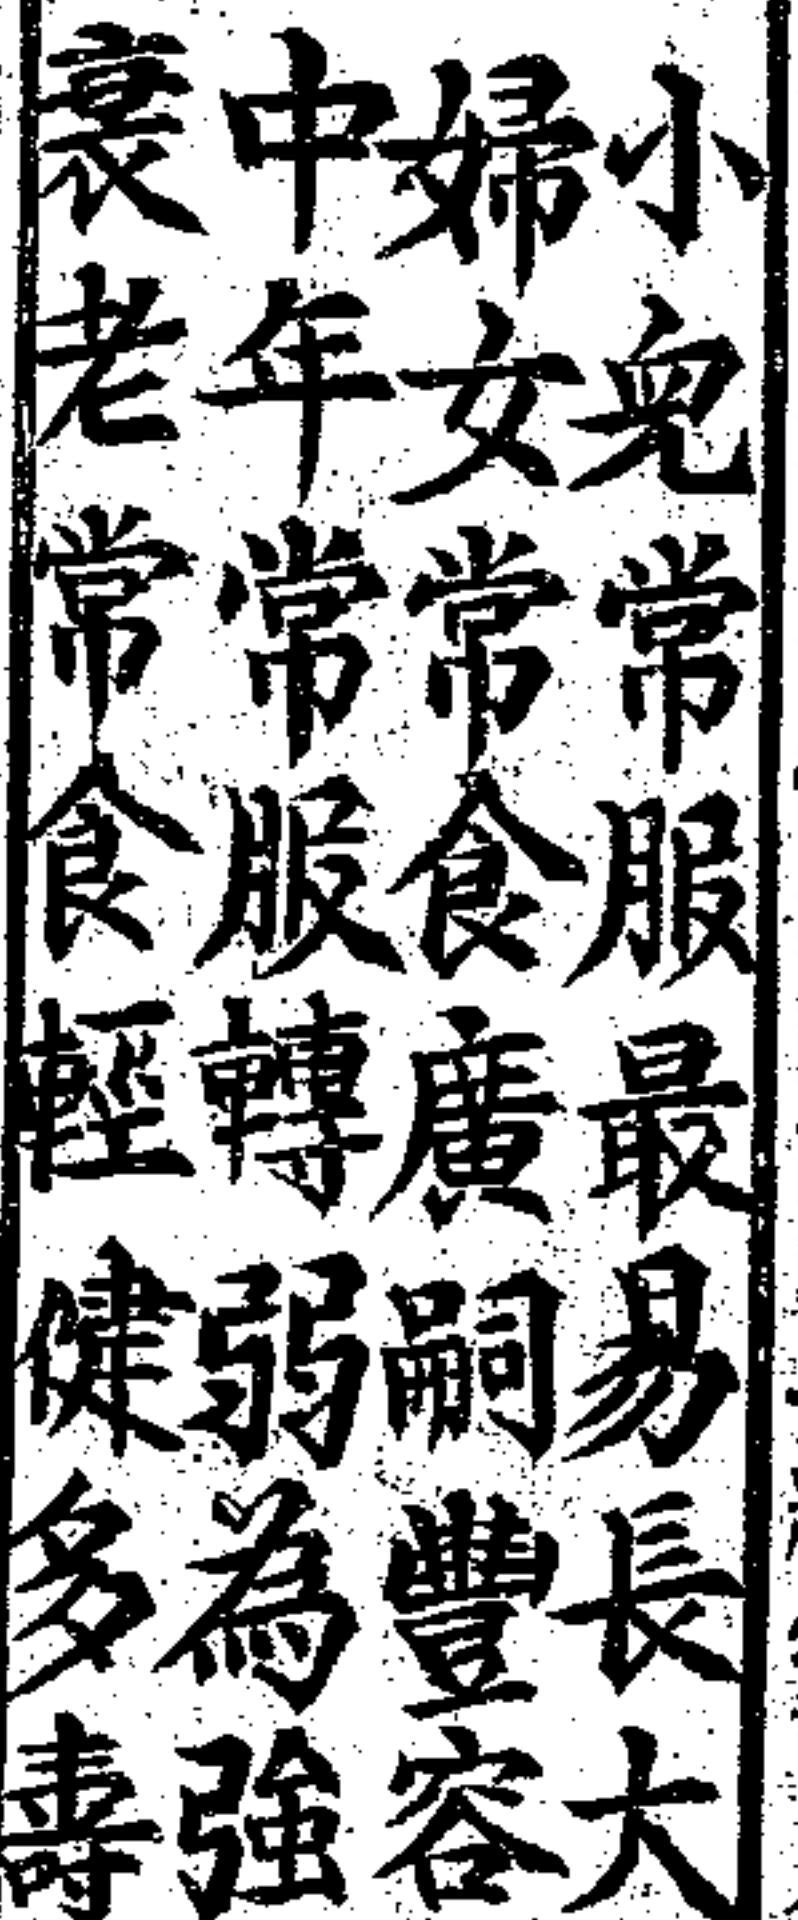 小兒常服最易長大
婦女常食廣嗣豐容
中年常服轉弱為強
衰老常食輕健多壽